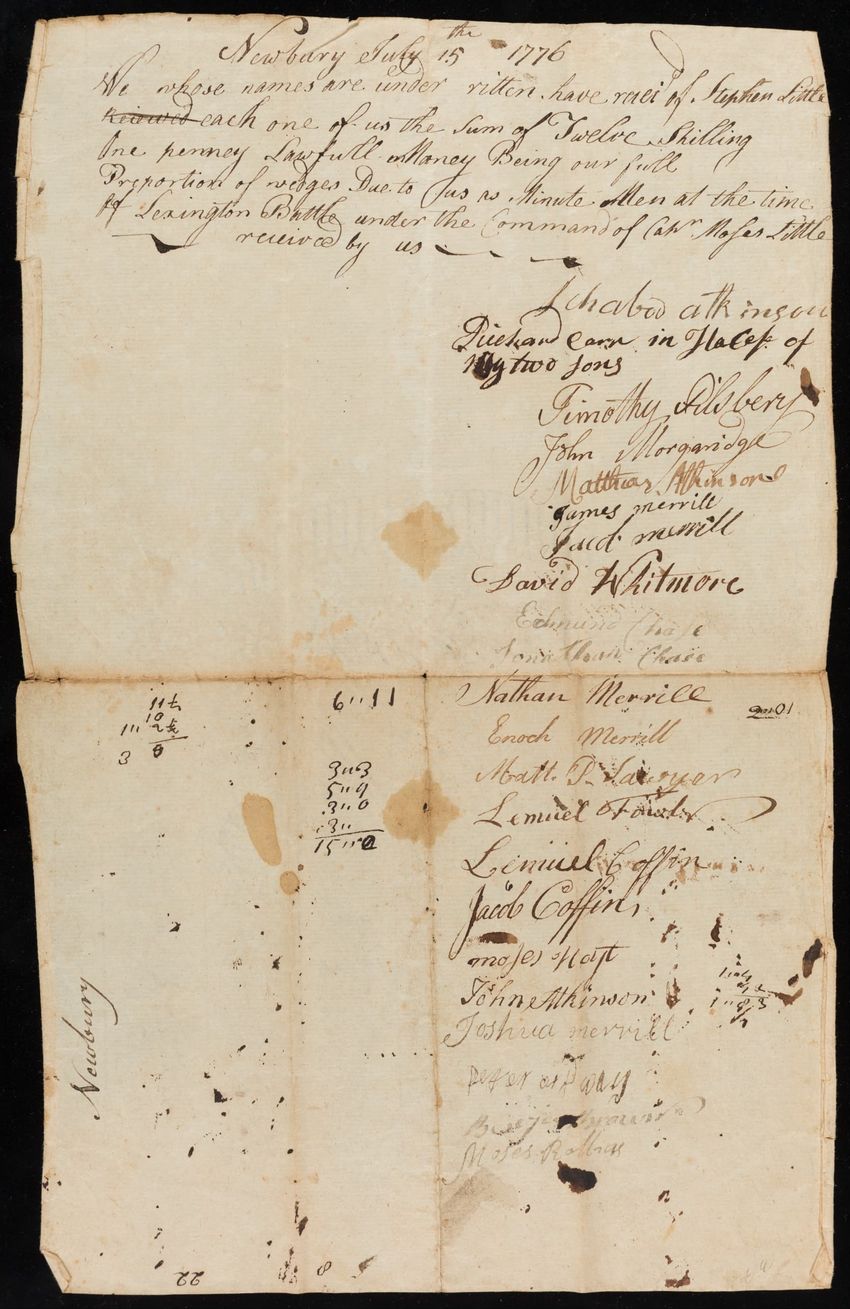 Newbury July 15 the 1776
We whose names are under ritten have receid of Stephen Little
each one of us the Sum of Twelve Shilling
One penney Lawfull Maney Being our full
Proportion of wedges Due to us as Minute Men at the time
of Lexington Battle under the Command of Capt Moses Little
receieved by us
Ichabod atkinson
Richard Carr in of
My two sons
Timothy Pilsbery
John Morgaridge
Matthias Atkinson
James merrill
Jacob merrill
David Whitmore
Edmund Chase
Jonathan Chase
Nathan Merrill
Enoch Merrill
Matt. P. Sawyer
Lemuel Fowler
Lemuel Coffin
Jacob Coffin
moses Hoyt
John Atkinson
Joshua merrill
Peter ordway
Moses Rollins
11½
10
1" 2½
3 0
6"11
3"3
5"9
3"0
3"
15"0
2"01
Newbury
22
8